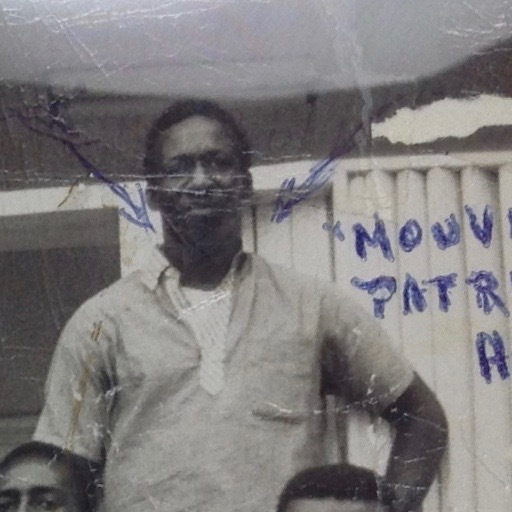 "MOUV
PATR
H